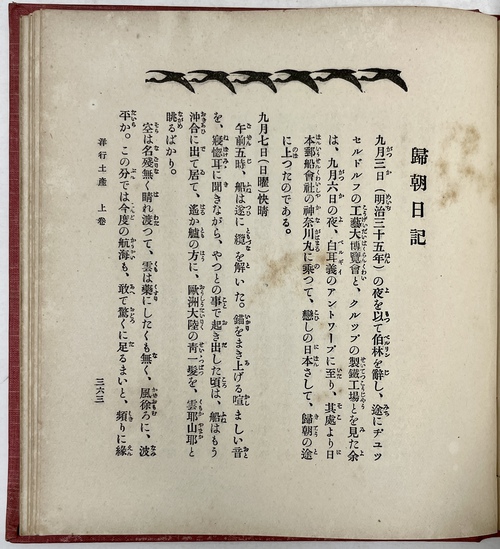 歸朝日記
九月三日（明治三十五年）の夜を以て伯林を辭し、途にヂュッ
セルドルフの工藝大博覽會と、クルップの製鐵工場とを見た余
は、九月六日の夜、白耳義のアントワープに至り、其處より日
本郵船會社の神奈川丸に乘つて、戀しの日本さして、歸朝の途
に上つたのである。
九月七日（日曜）快晴
午前五時、船は遂に纜を解いた。錨をまき上げる喧ましい音
を、寢惚耳に聞きながら、やつとの事で起き出した頃は、船はもう
沖合に出て居て、遙か艫の方に、歐洲大陸の靑一髮を、雲耶山耶と
眺るばかり。
空は名殘無く晴れ渡つて、雲は藥にしたくも無く、風徐ろに、波
平か。この分では今度の航海も、敢て驚くに足るまいと、頻りに緣
洋行土產 上卷
三六三